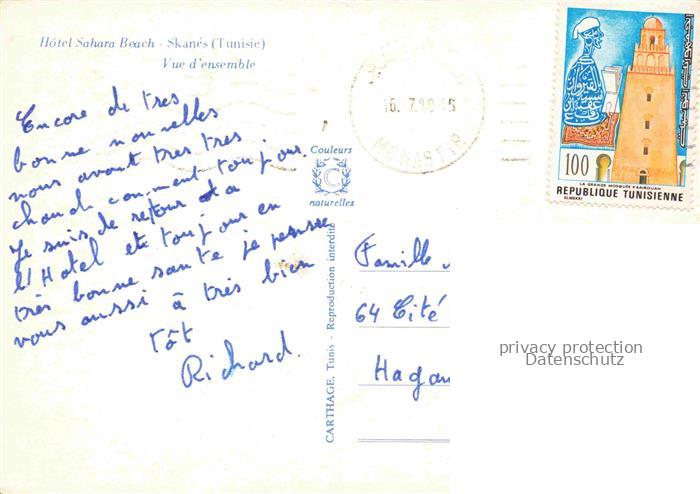 Hôtel Sahara Beach - Skanès (Tunisie)
Vue d'ensemble
Encore de tres
bonne nouvelles
nous avont tres tres
chaud comment toujour.
Je suis de retour a
l'Hotel et toujour en
très bonne sante je pensse
vous aussi à très bien
tôt
Richard.
Couleurs
C
naturelles
CARTHAGE, Tunis - Reproduction interdite
16. 7.90-15
MONASTIR
100
LA GRANDE MOSQUÉE KAIROUAN
REPUBLIQUE TUNISIENNE
ELMEKKI
الجمهورية التونسية
Famille
64 Cité
Hagan
privacy protection
Datenschutz